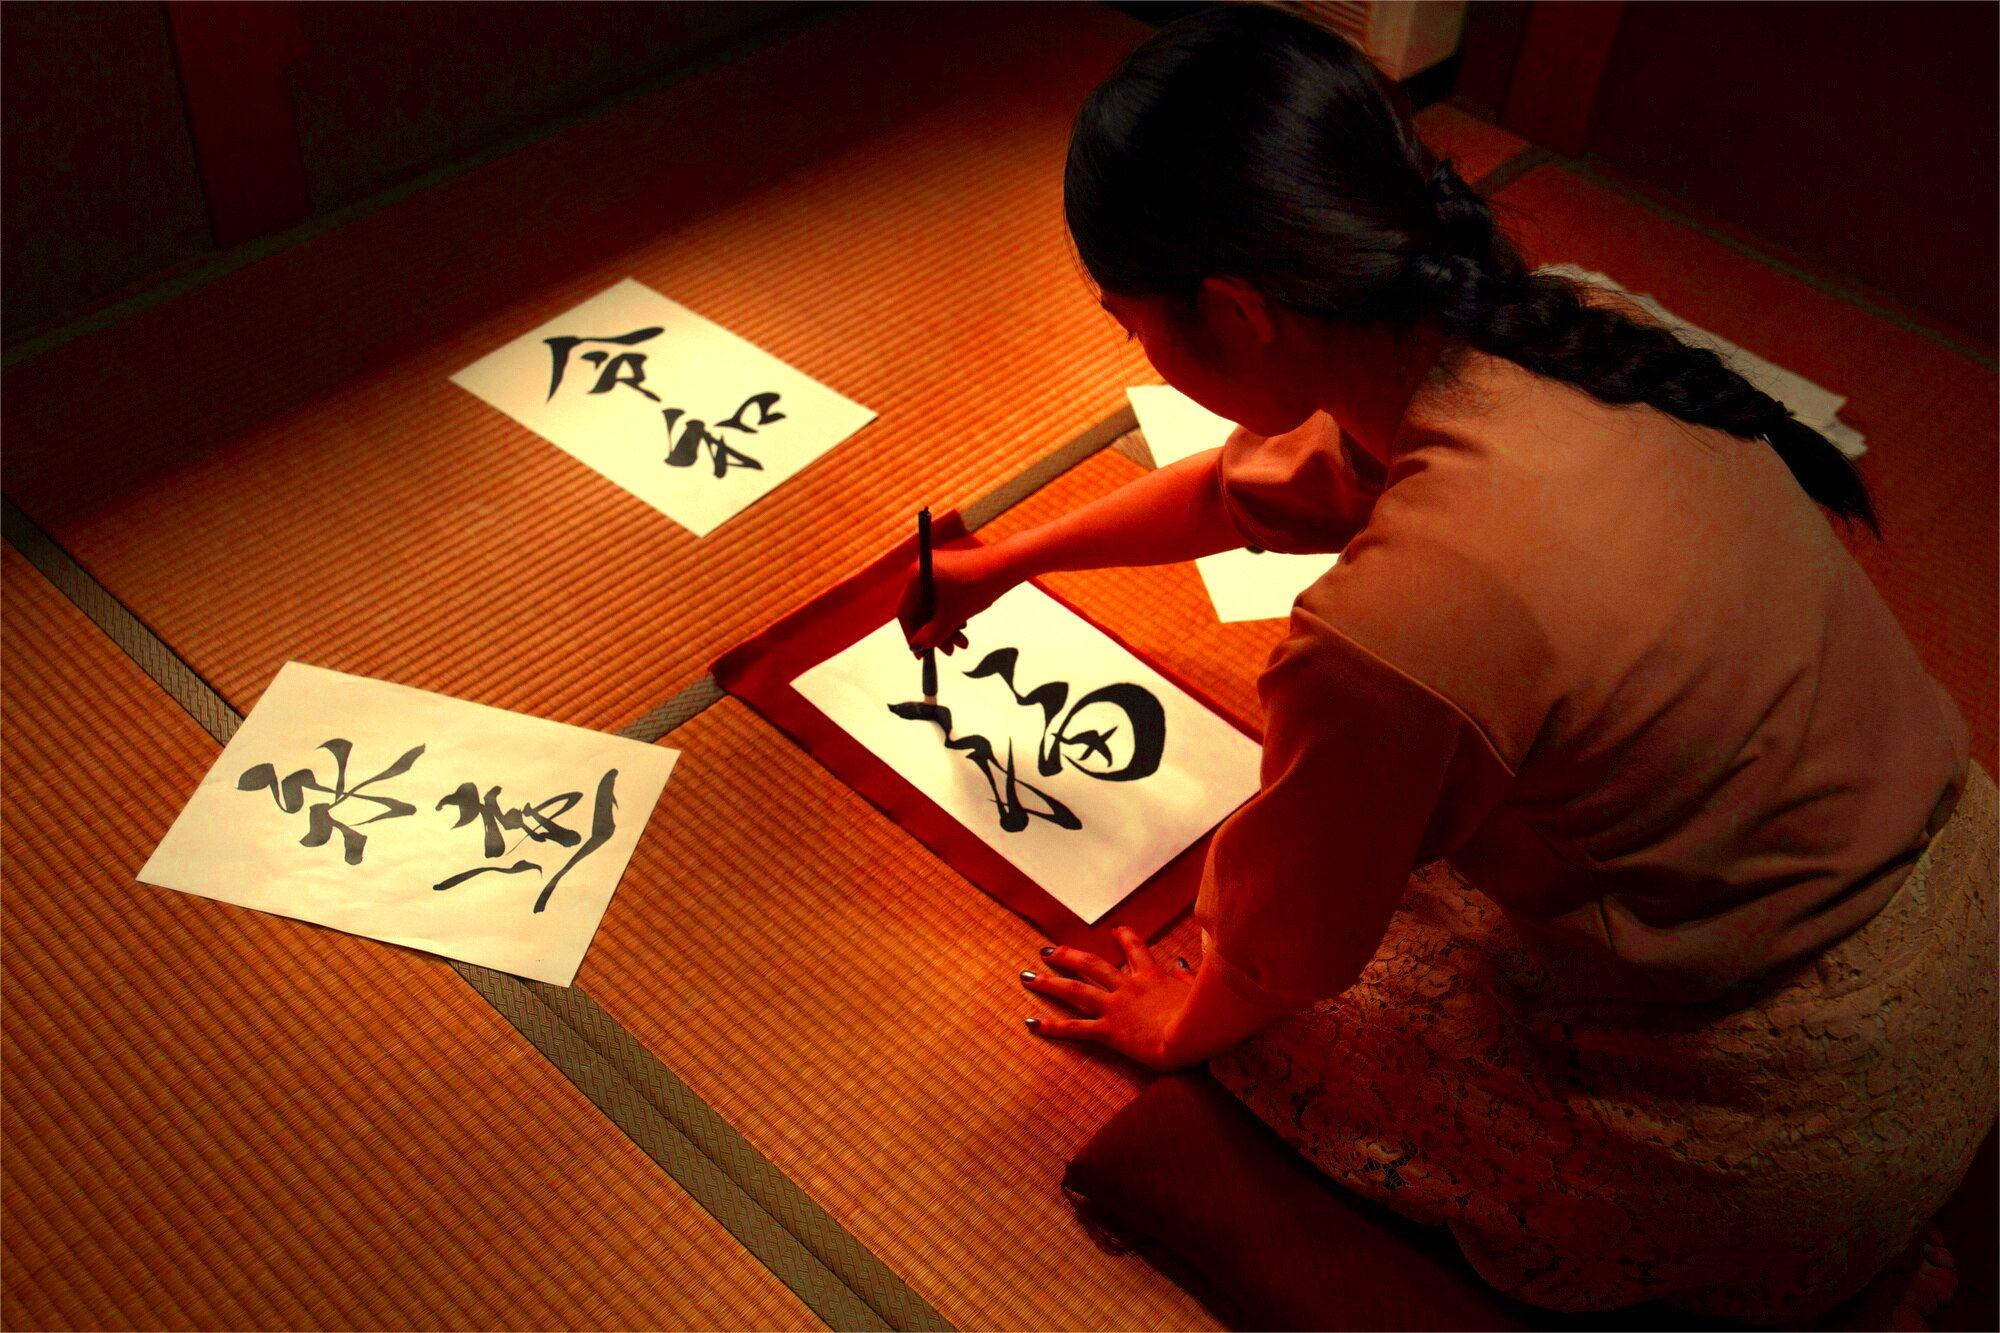 令和
永遠
福